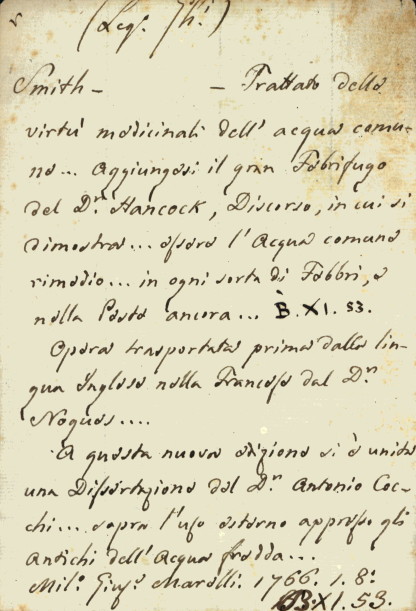 (Leg. Gh.)
Smith - - Trattato delle
virtù medicinali dell' acqua comu-
ne... Aggiungesi il gran Febrifugo
del D.r Hancock, Discorso, in cui si
dimostra... essere l'Acqua comune
rimedio... in ogni sorta di Febbri, e
nella Peste ancora... B. XI. 53.
Opera trasportata prima dalla lin-
gua Inglese nella Francese dal D.r
Nogues....
A questa nuova edizione si è unita
una Dissertazione del D.r Antonio Coc-
chi... sopra l'uso esterno appresso gli
Antichi dell'Acqua fredda...
Mil.o Gius.e Marelli. 1766. 1. 8.o
B.XI.53.